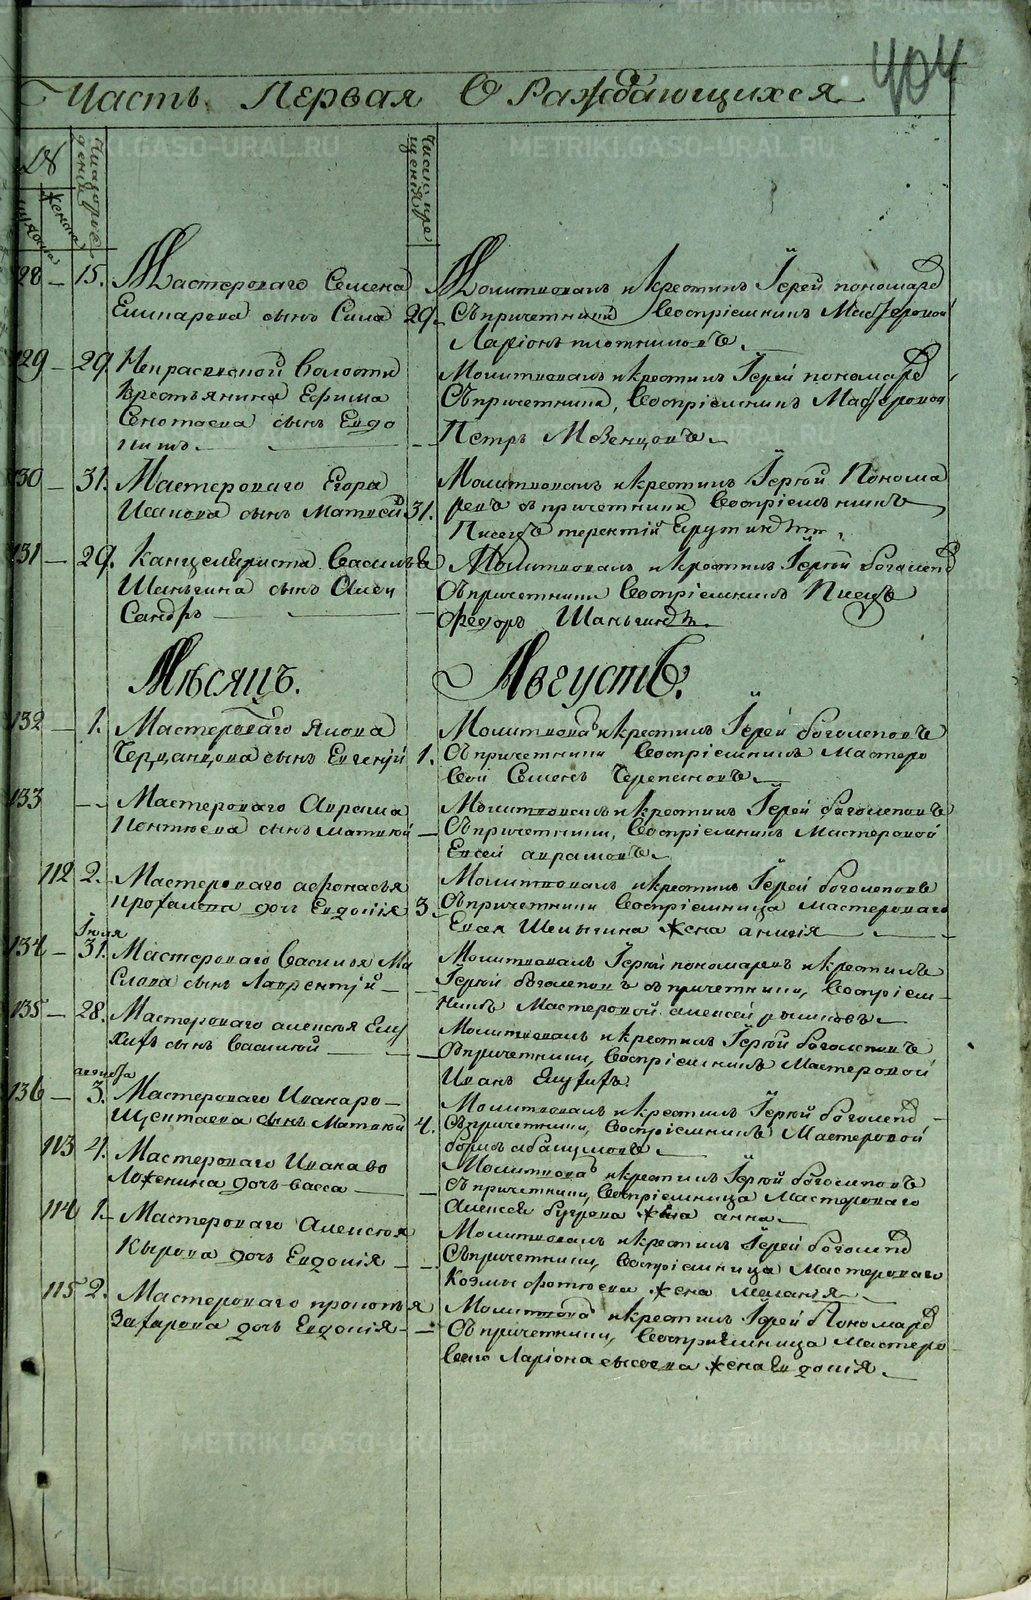 404
Часть Первая О Раждающихся
№
мужеска
женска
Число рож
дения
Число кре
щения
128 — 15. Мастероваго Семена
сынъ Сила 29.
Молитвовалъ и крестилъ Їерей пономарев
Съ причетники Воспрiемникъ Мастеровой
Ларiонъ плотниковъ.
129 — 29. Некрасовской волости
Крестьянина Ефима
сынъ Евдо
кимъ. —
Молитвовалъ и крестилъ Їерей пономарев
Съ причетники, Воспрiемникъ Мастеровой
Петръ Мезенцовъ.
130 — 31. Мастероваго Егора
Исакова сынъ Матвей 31.
Молитвовалъ и крестилъ Їерей Понома
ревъ съ причетники Воспрiемникъ
Писецъ терентiй
131 — 29. Канцеляриста Василья
Шаньгина сынъ Алек
сандръ —
Молитвовалъ и крестилъ Їерей боголепов
Съ причетники Воспрiемникъ Писецъ
Федоръ Шаньгинъ.
Мѣсяцъ. Августъ.
132 — 1. Мастероваго Якова
сынъ Евгенiй 1.
Молитвовалъ и крестилъ Їерей боголеповъ
Съ причетники Воспрiемникъ Мастеро
вой Семенъ Черепановъ.
133 — Мастероваго Аврама
сынъ Матвей —
Молитвовалъ и крестилъ Їерей боголеповъ
Съ причетники, Воспрiемникъ Мастеровой
Евсей аврамовъ.
112 2. Мастероваго афонасья
дочь Евдокiя 3.
Молитвовалъ и крестилъ Їерей боголеповъ
Съ причетники Воспрiемница Мастероваго
жена
Їюля
134 — 31. Мастероваго Василья Ма
слова сынъ Лаврентiй —
Молитвовалъ Їерей пономаревъ и крестилъ
Їерей боголеповъ съ причетники, Воспрiем
никъ Мастеровой алексей
135 — 28. Мастероваго алексея
сынъ Василий —
Молитвовалъ и крестилъ Їерей боголеповъ
Съ причетники, Воспрiемникъ Мастеровой
Иванъ
августа
136 — 3. Мастероваго Ивана
сынъ Матвей 4.
Молитвовалъ и крестилъ Їерей боголепов
Съ причетники, Воспрiемникъ Мастеровой
113 4. Мастероваго Ивана во
ложенина дочь васса —
Молитвовалъ и крестилъ Їерей боголеповъ
Съ причетники, Воспрiемница Мастероваго
Алексея жена анна.
114 1. Мастероваго Алексея
Кырова дочь Евдокiя —
Молитвовалъ и крестилъ Їерей боголепов
Съ причетники, Воспрiемница Мастероваго
Козмы фотиева жена меланiя.
115 2. Мастероваго прокопья
Захарова дочь Евдокiя —
Молитвовалъ и крестилъ Їерей Пономарев
Съ причетники, Воспрiемница Мастеро
ваго Ларiона сысоева жена Евдокiя.
METRIKI.GASO-URAL.RU